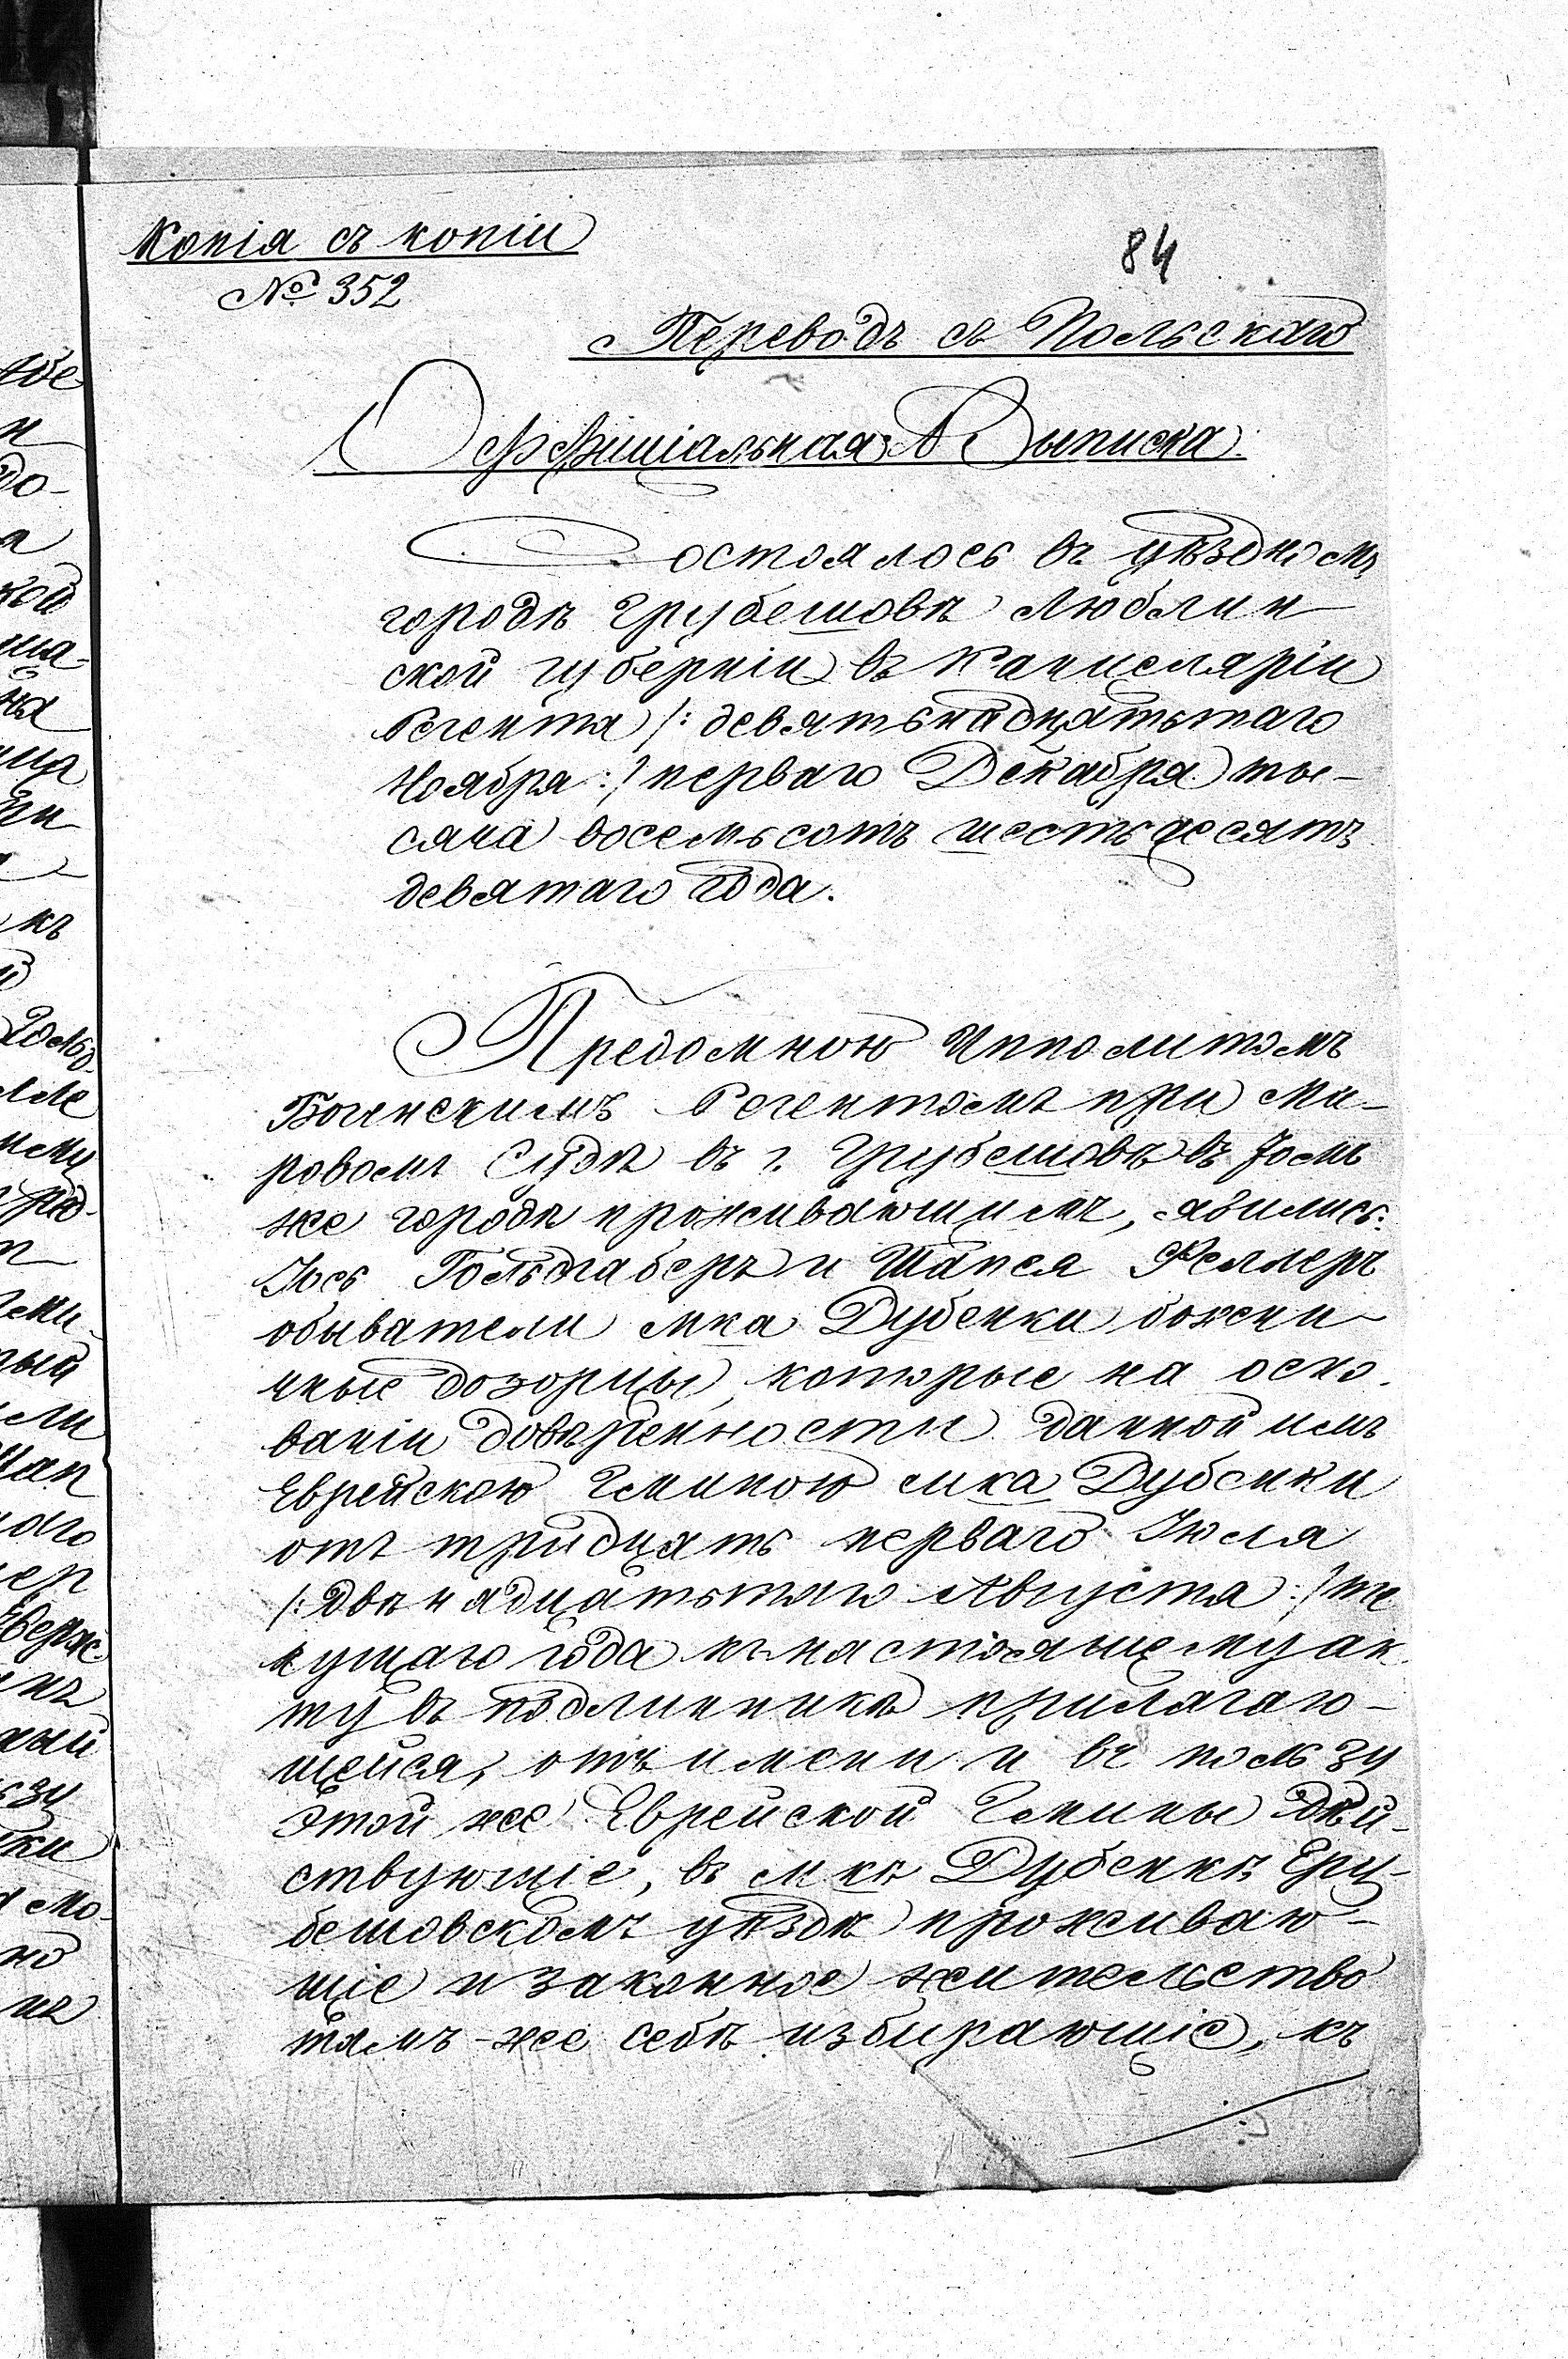 Копія съ копіи
84
№ 352
Переводъ съ Польскаго
Оффиціальная Выписка.
Состоялось въ уѣздномъ
городѣ Грубешовѣ Люблин
ской губерніи въ Канцеляріи
Регента /: девятьнадцатьтаго
Ноября :/ перваго Декабря ты-
сяча восемьсотъ шестьдесятъ
девятаго года.
Предомною Ипполитомъ
Регентомъ при Ми-
ровомъ Судѣ въ г. Грубешовѣ въ томъ
же городѣ проживающимъ, явились:
Іось Гольдгаберъ и Шапся Феллеръ
обыватели мка Дубенки божни-
чные дозорцы, которые на осно-
ваніи довѣренности данной имъ
Еврейскою Гминою мка Дубенки
отъ тридцать перваго Іюля
/: двѣнадцатьтаго Августа :/ те
кущаго года къ настоящему ак
ту въ подлинникѣ прилагаю-
щейся, отъ имени и въ пользу
этой же Еврейской Гмины дѣй-
ствующіе, въ мкѣ Дубенкѣ Гру-
бешовскомъ уѣздѣ проживаю-
щіе и законное жительство
тамъ-же себѣ избирающіе, къ